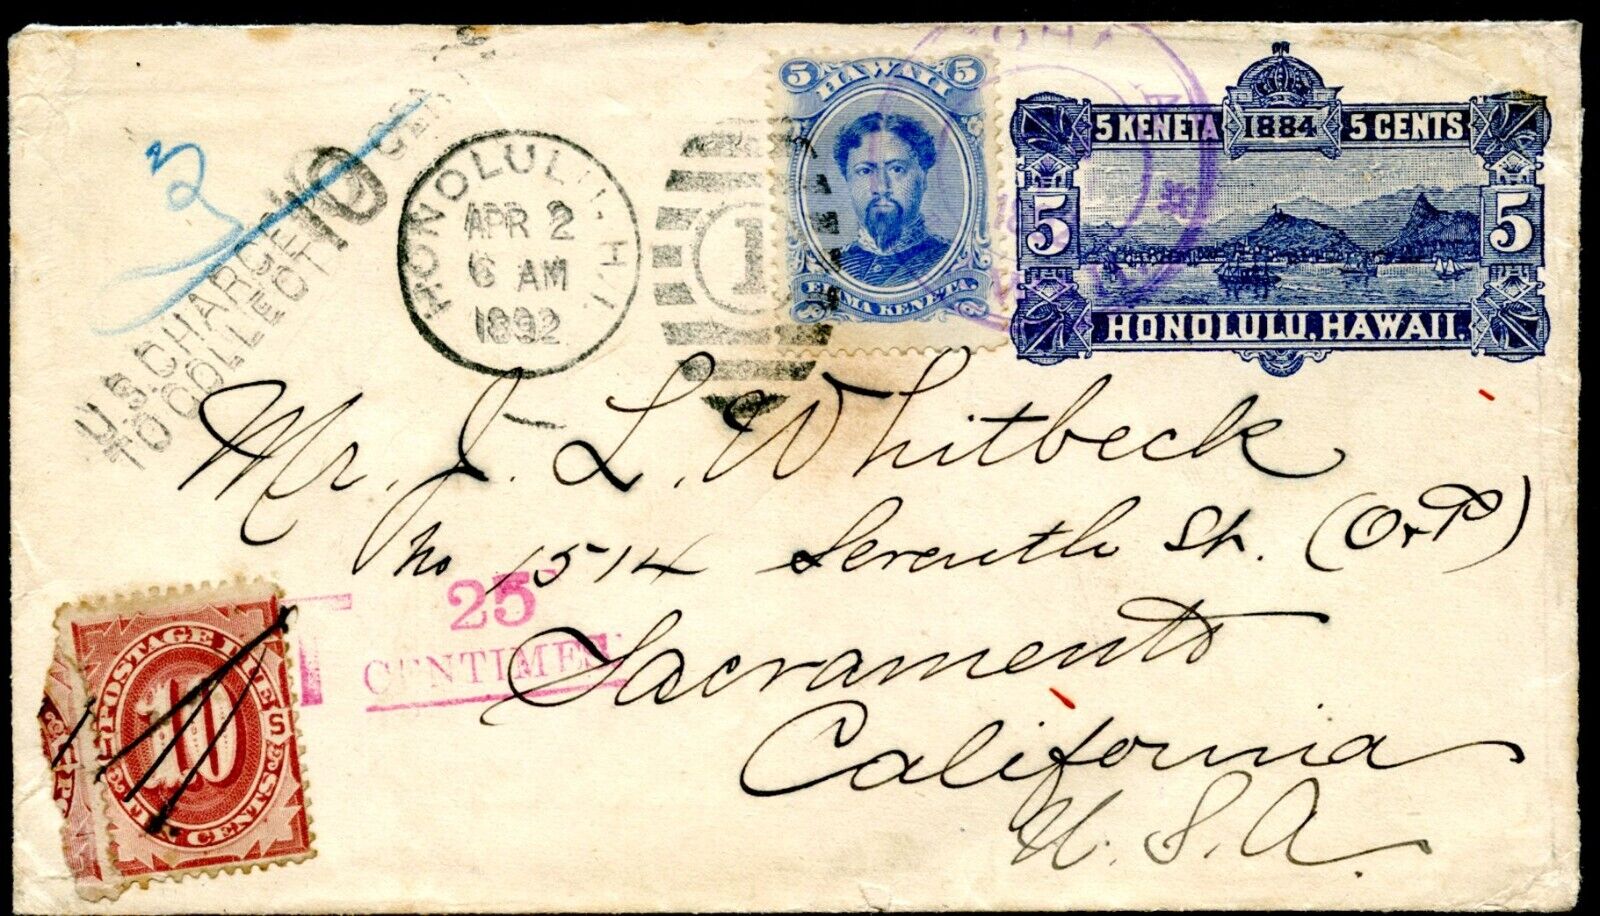 U.S. CHARGE
TO COLLECT 10 CENTS
3
HONOLULU-H.I.
APR 2
6 AM
1892
1
5 HAWAII 5
ELIMA KENETA.
5 KENETA 1884 5 CENTS
5 5
HONOLULU, HAWAII.
Mr. J. L. Whitbeck
No 1514 Seventh St. (O & P)
Sacramento
California
U. S. A.
T
25
CENTIMES
POSTAGE DUE
10
TEN CENTS
U S